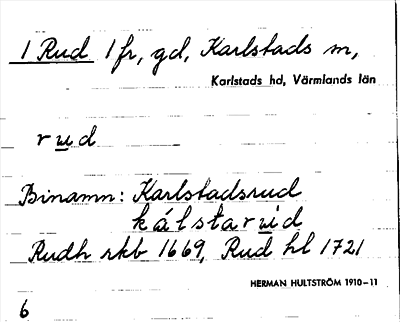 1 Rud 1 fr, gd, Karlstads sn,
Karlstads hd, Värmlands län
rud
Binamn: Karlstadsrud
kálstarud
Rudh rkb 1669, Rud hl 1721
HERMAN HULTSTRÖM 1910–11
6